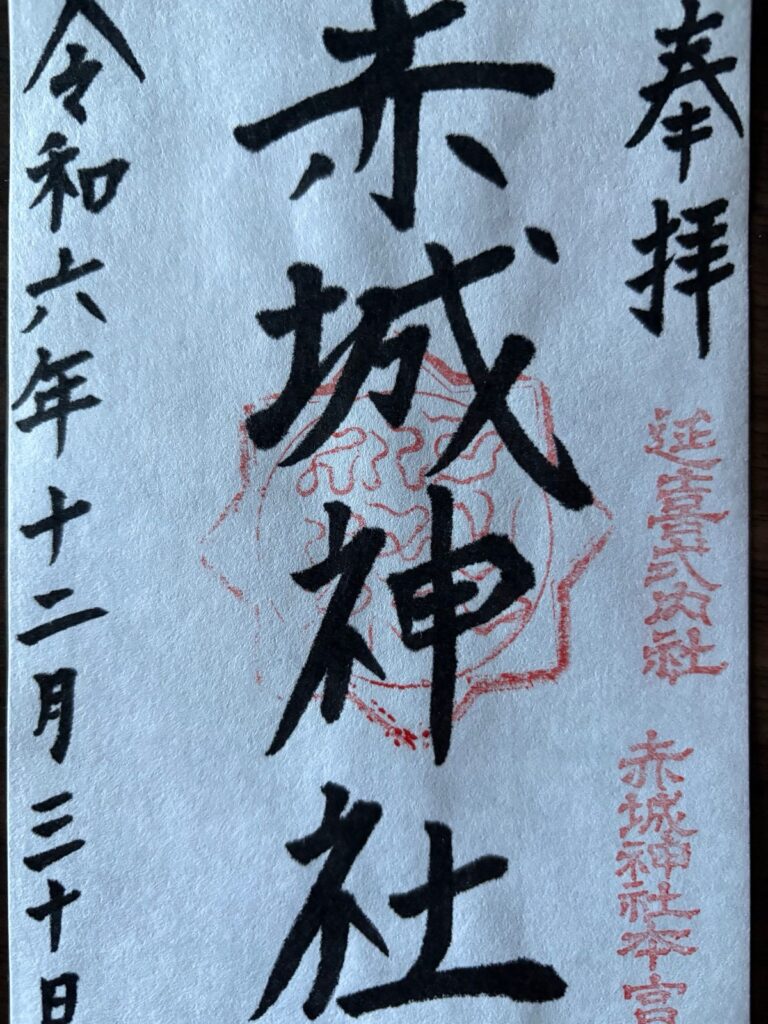 奉拝
延喜式内社
赤城神社本宮
赤城神社
令和六年十二月三十日